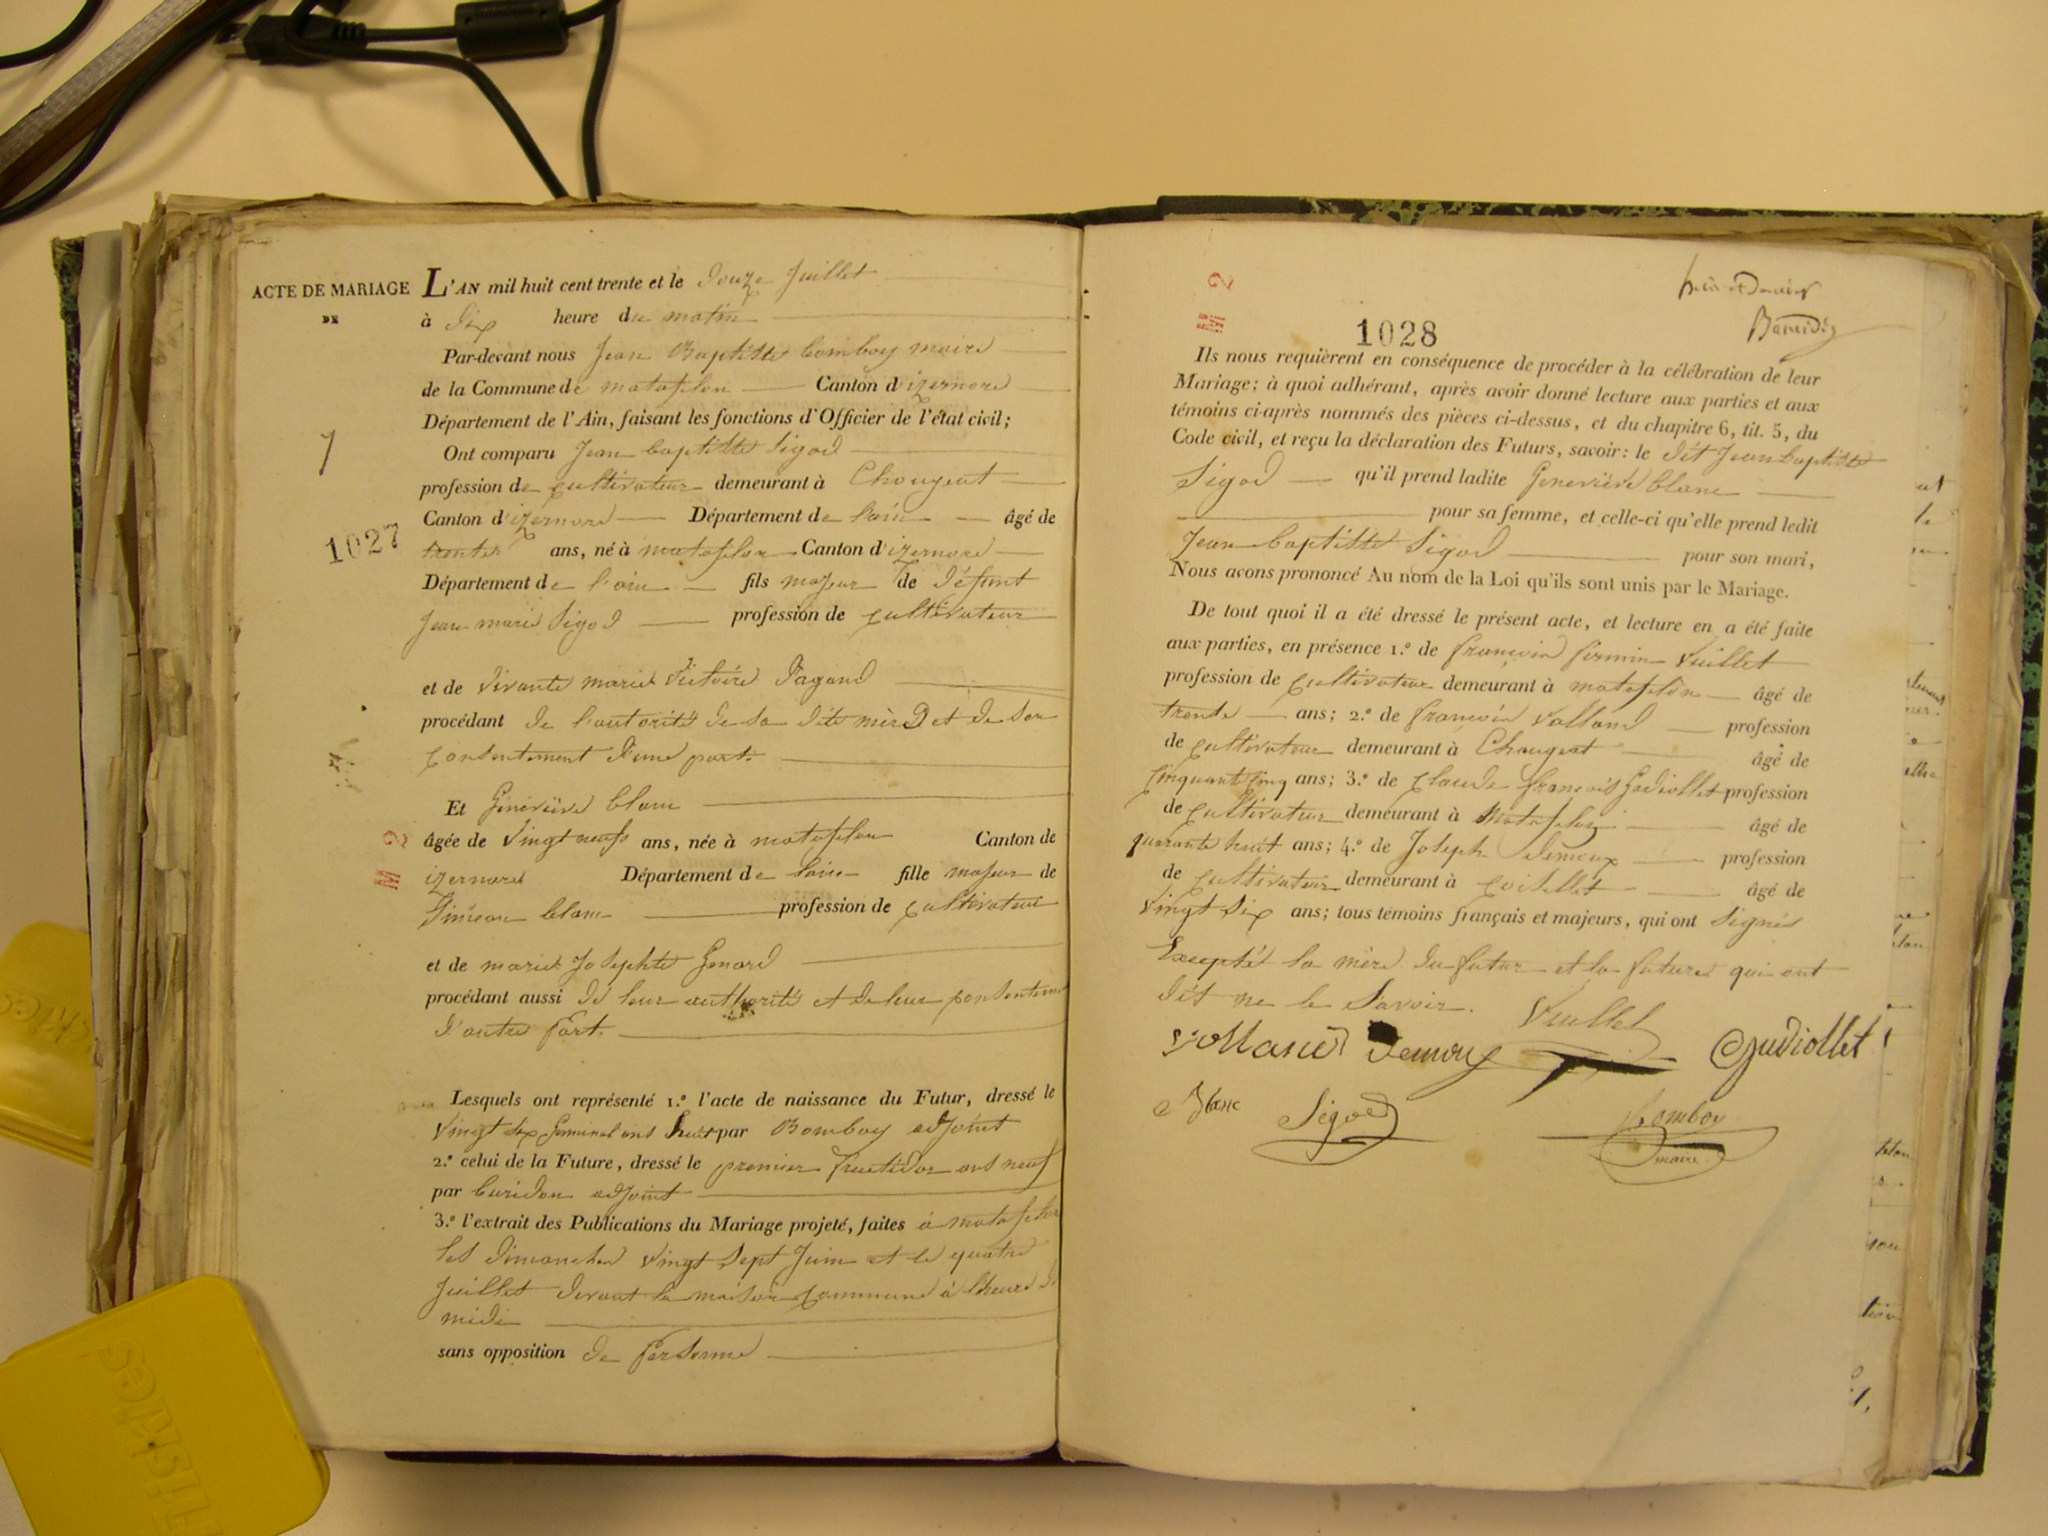 ACTE DE MARIAGE
DE
7
1027
M 2
L'AN mil huit cent trente et le douze Juillet
à dix heure du matin
Par-devant nous Jean Baptiste Bomboy maire
de la Commune de matafelon Canton d'izernore
Département de l'Ain, faisant les fonctions d'Officier de l'état civil;
Ont comparu Jean baptiste Sigod
profession de cultivateur demeurant à Chougeat
Canton d'izernore Département de l'ain âgé de
ans, né à matafelon Canton d'izernore
Département de l'ain fils majeur de défunt
Jean marie Sigod profession de cultivateur
et de vivante marie victoire Pagand
procédant de l'autorité de sa dite mère et de son
consentement d'une part.
Et Geneviève blanc
âgée de vingt neuf ans, née à matafelon Canton de
izernore Département de l'ain fille majeur de
Siméon blanc profession de cultivateur
et de marie Josephte Genard
procédant aussi de leur authorité et de leur consentement
d'autre part.
Lesquels ont représenté 1.º l'acte de naissance du Futur, dressé le
vingt six germinal ans huit par Bomboy adjoint
2.º celui de la Future, dressé le premier fructidor ans neuf
par buridon adjoint
3.º l'extrait des Publications du Mariage projeté, faites à matafelon
les dimanches vingt sept Juin et le quatre
Juillet devant la maison commune à l'heure de
midi
sans opposition de personne
2
1028
Ils nous requièrent en conséquence de procéder à la célébration de leur
Mariage; à quoi adhérant, après avoir donné lecture aux parties et aux
témoins ci-après nommés des pièces ci-dessus, et du chapitre 6, tit. 5, du
Code civil, et reçu la déclaration des Futurs, savoir: le dit Jean baptiste
Sigod qu'il prend ladite Geneviève blanc
pour sa femme, et celle-ci qu'elle prend ledit
Jean baptiste Sigod pour son mari,
Nous avons prononcé Au nom de la Loi qu'ils sont unis par le Mariage.
De tout quoi il a été dressé le présent acte, et lecture en a été faite
aux parties, en présence 1.º de françois firmin Vuillet
profession de cultivateur demeurant à matafelon âgé de
trente ans; 2.º de françois volland profession
de cultivateur demeurant à Chougeat âgé de
cinquante cinq ans; 3.º de claude françois Gudiollet profession
de cultivateur demeurant à Matafelon âgé de
quarante huit ans; 4.º de Joseph demoux profession
de cultivateur demeurant à coiselet âgé de
vingt six ans; tous témoins français et majeurs, qui ont signés
Excepté la mère du futur et la future qui ont
dit ne le savoir. Vuillet
Demoux Gudiollet
Blanc Sigod Bomboy
maire